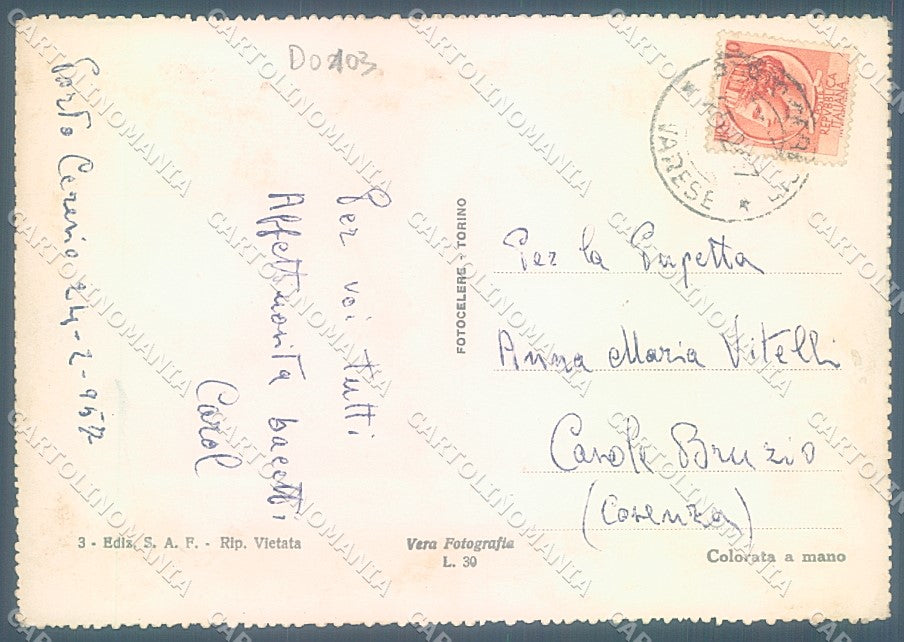 Do103
Porto Ceresio 24-2-957
Per voi tutti
Affettuosità bacetti
Carol
FOTOCELERE - TORINO
REPVBBLICA
ITALIANA
VARESE
Per la Pupetta
Anna Maria Vitelli
Casole Bruzio
(Cosenza)
3 - Ediz. S. A. F. - Rip. Vietata
Vera Fotografia
L. 30
Colorata a mano
CARTOLINOMANIA